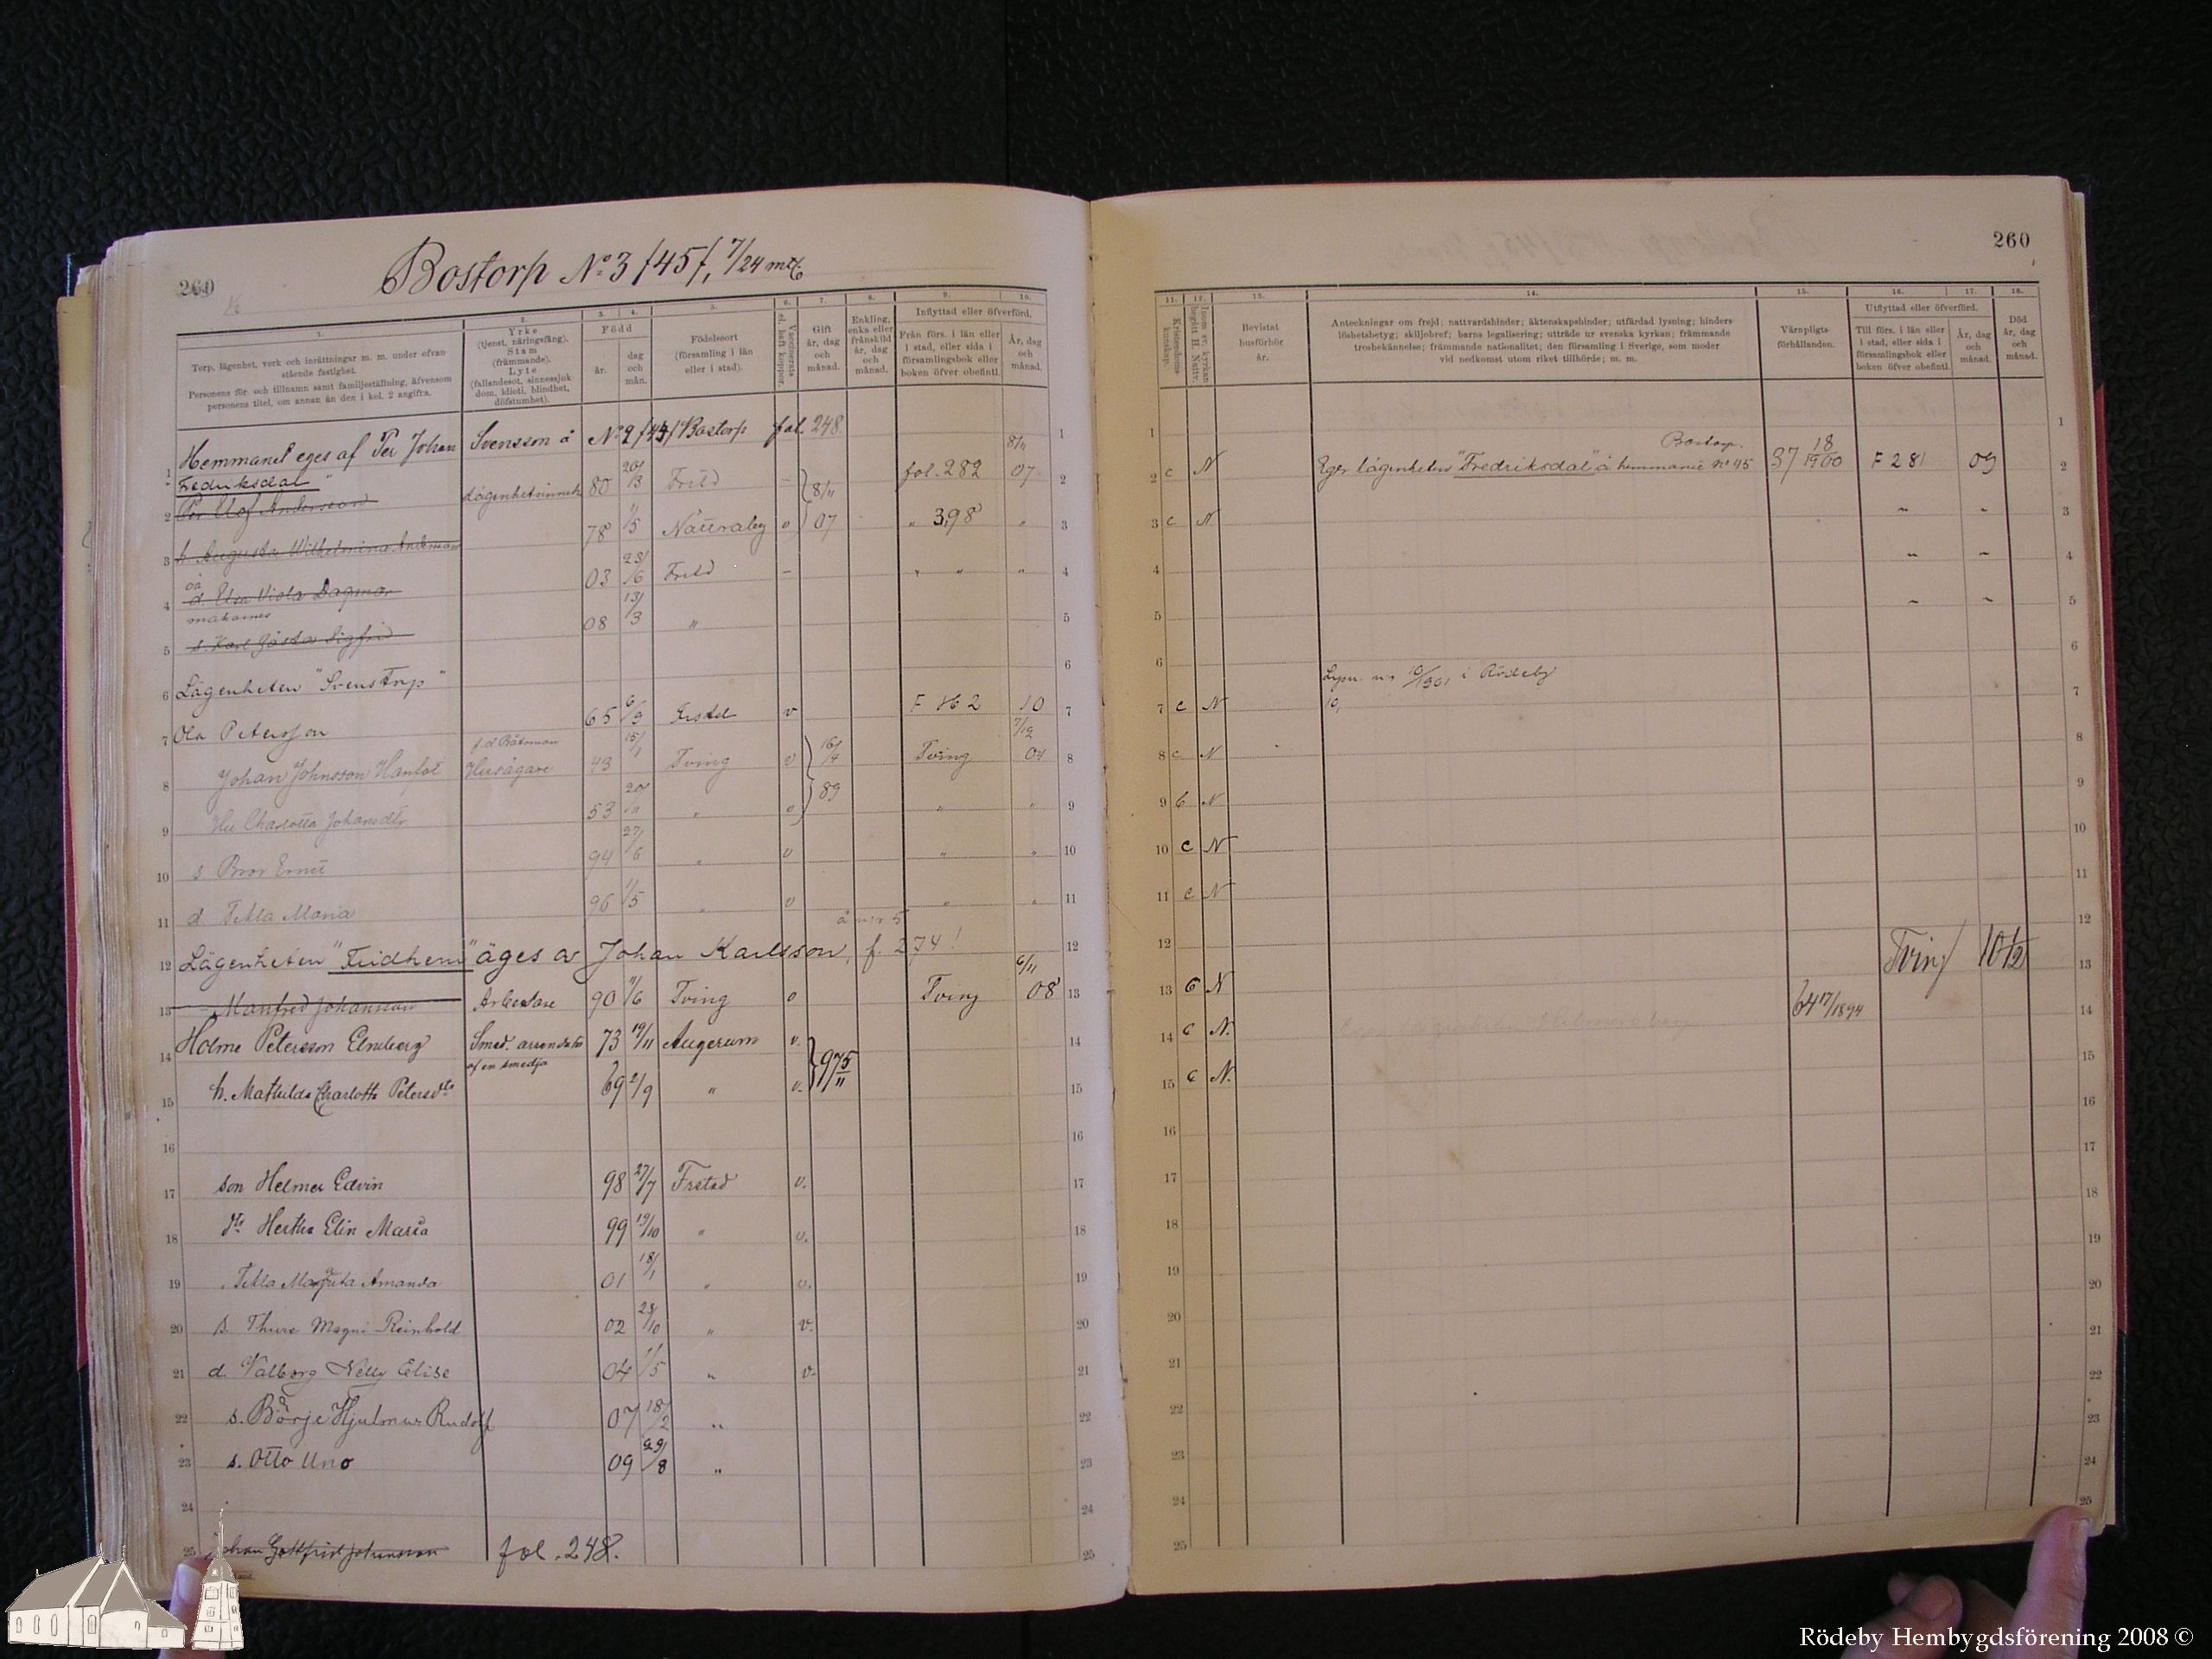 260
Bostorp No 3 /45/, 7/24 mtl
1. 2. 3. 4. 5. 6. 7. 8. 9. 10.
Torp, lägenhet, verk och inrättningar m. m. under ofvan stående fastighet.
Personens för- och tillnamn samt familjeställning, äfvensom personens titel, om annan än den i kol. 2 angifra.
Yrke (tjenst, näringsfång). Stam (främmande). Lyte (fallandesot, sinnessjukdom, idioti, blindhet, döfstumhet).
Född
år. dag och mån.
Födelseort (församling i län eller i stad).
Vaccinerats el. haft koppor.
Gift år, dag och månad.
Enkling, enka eller frånskild år, dag och månad.
Inflyttad eller öfverförd.
Från förs. i län eller i stad, eller sida i församlingsbok eller boken öfver obefintl.
År, dag och månad.
1 Hemmanet eges af Per Johan Svensson å No 2 /44/ Bostorp fol. 248.
Fredriksdal
2 Per Olof Andersson Lägenhetsinneh 80 20/3 Frstd - 8/11 07 fol. 282 8/11 07
3 h. Augusta Wilhelmina Andersson 78 1/5 Nättraby v " 398 "
4 oä d. Elsa Viola Dagmar 03 23/6 Frstd - " " "
makarnes
5 s. Karl Gösta Sigfrid 08 13/3 "
6 Lägenheten "Svenstorp"
7 Ola Petersson 65 6/9 Frstd v F 162 10
8 Johan Johnsson Hanfot f.d. Båtsman Husägare 43 15/1 Tving v 16/4 89 Tving 7/12 04
9 Hu Charlotta Johansdtr 53 " v " "
10 s Bror Ernst 94 27/6 " v " "
11 d. Tekla Maria 96 1/5 " v " "
å n:r 5
12 Lägenheten "Fridhem" äges av Johan Karlsson, f 274!
13 Manfred Johansson Arbetare 90 11/6 Tving v Tving 6/11 08
14 Holme Petersson Elmberg Smed. arrendator af en smedja 73 19/11 Augerum v. 97 5/11
15 h. Mathilda Charlotta Petersdtr 69 2/9 " v.
16
17 son Helmer Edvin 98 27/7 Frstad v.
18 dtr Hertha Elin Maria 99 19/10 " v.
19 Tekla Margreta Amanda 01 18/1 " v.
20 s. Thure Magni Reinhold 02 28/10 " v.
21 d. Valborg Nelly Elise 04 1/5 " v.
22 s. Börje Hjalmar Rudolf 07 18/2 "
23 s. Otto Uno 09 29/8 "
24
25 Johan Gottfrid Johansson fol. 248.
260
11. 12. 13. 14. 15. 16. 17. 18.
Kristendomskunskap.
Inom sv. kyrkan begått H. Nattv.
Bevistat husförhör år.
Anteckningar om frejd; nattvardshinder; äktenskapshinder; utfärdad lysning; hinderslöshetsbetyg; skiljebref; barns legalisering; utträde ur svenska kyrkan; främmande trosbekännelse; främmande nationalitet; den församling i Sverige, som moder vid nedkomst utom riket tillhörde; m. m.
Värnpligtsförhållanden.
Utflyttad eller öfverförd.
Till förs. i län eller i stad, eller sida i församlingsbok eller boken öfver obefintl.
År, dag och månad.
Död år, dag och månad.
1
Bostorp.
2 c N Eger lägenheten "Fredriksdal" å hemmanet no 45 37 18/1900 F 281 09
3 c N " "
4 " "
5 " "
6
7 c N
8 c N
9 b N
10 c N
11 c N
12
13 c N Tving 10
14 c N. 64 17/1894
15 c N.
16
17
18
19
20
21
22
23
24
25
Rödeby Hembygdsförening 2008 ©